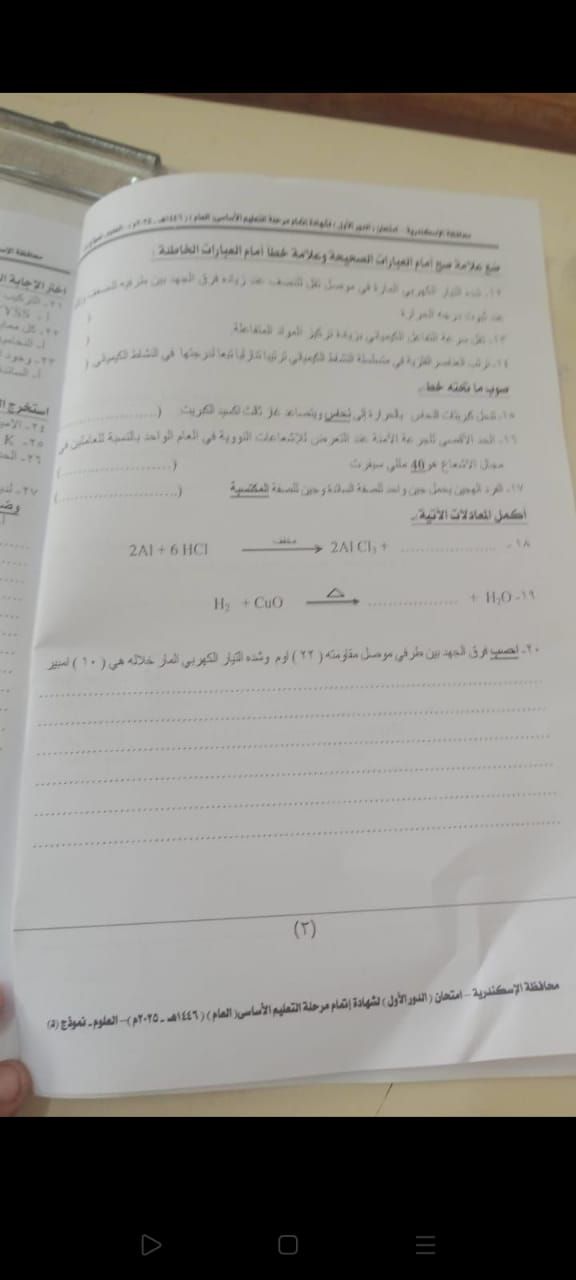 محافظة الإسكندرية – امتحان (الدور الأول) لشهادة إتمام مرحلة التعليم الأساسى (العام) (١٤٤٦هـ - ٢٠٢٥م) – العلوم
ضع علامة صح أمام العبارات الصحيحة وعلامة خطأ أمام العبارات الخاطئة :
١٢- شدة التيار الكهربي المارة في موصل تقل للنصف عند زيادة فرق الجهد بين طرفيه للضعف
عند ثبوت درجة الحرارة (
١٣- تقل سرعة التفاعل الكيميائي بزيادة تركيز المواد المتفاعلة. (
١٤- ترتب العناصر الفلزية في متسلسلة النشاط الكيميائي ترتيباً تنازلياً تبعاً لدرجتها في النشاط الكيميائي (
صوب ما تحته خط:
١٥- تنحل كبريتات النحاس بالحرارة إلى نحاس ويتصاعد غاز ثالث أكسيد الكبريت (....................
١٦- الحد الأقصى للجرعة الآمنة عند التعرض للإشعاعات النووية في العام الواحد بالنسبة للعاملين في
مجال الإشعاع هو 40 مللي سيفرت (....................)
١٧- الفرد الهجين يحمل جين واحد للصفة السائدة وجين للصفة المكتسبة (....................)
أكمل المعادلات الآتية:
١٨- 2Al + 6 HCl مخفف → 2Al Cl₃ + ....................
١٩- H₂ + CuO Δ → .................... + H₂O
٢٠- احسب فرق الجهد بين طرفي موصل مقاومته (٢٢) أوم وشدة التيار الكهربي المار خلاله هي (١٠) أمبير
(٢)
محافظة الإسكندرية – امتحان (الدور الأول) لشهادة إتمام مرحلة التعليم الأساسى (العام) (١٤٤٦هـ - ٢٠٢٥م) – العلوم – نموذج (٥)